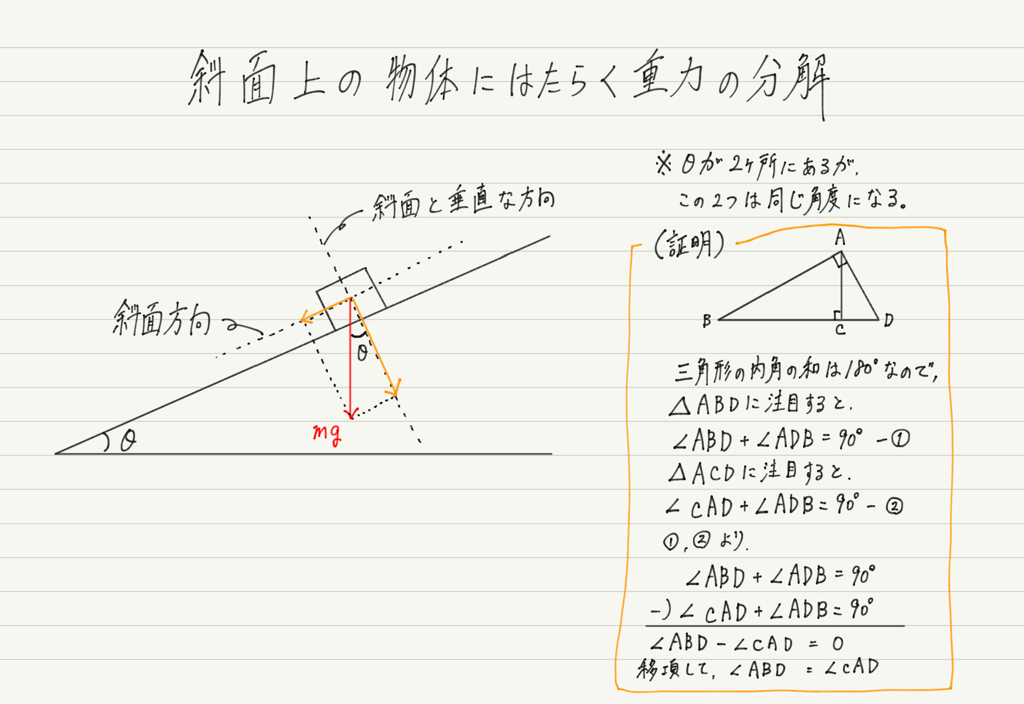 斜面上の物体にはたらく重力の分解
※ θが2ヶ所にあるが、
この2つは同じ角度になる。
斜面と垂直な方向
斜面方向
θ
mg
θ
(証明)
A
B
C
D
三角形の内角の和は180°なので、
△ABDに注目すると、
∠ABD+∠ADB=90° -①
△ACDに注目すると、
∠CAD+∠ADB=90° -②
①,②より、
∠ABD+∠ADB=90°
-)∠CAD+∠ADB=90°
∠ABD-∠CAD=0
移項して、∠ABD=∠CAD